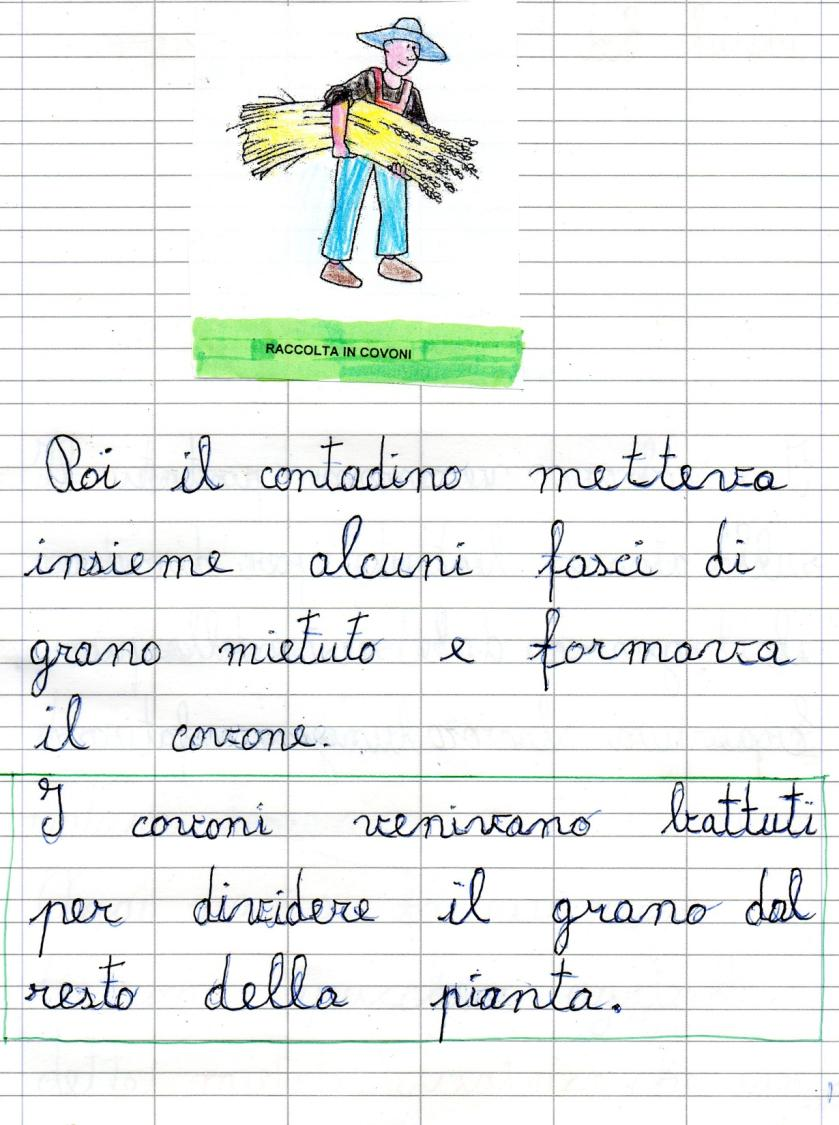 RACCOLTA IN COVONI
Poi il contadino metteva
insieme alcuni fasci di
grano mietuto e formava
il covone.
I covoni venivano battuti
per dividere il grano dal
resto della pianta.